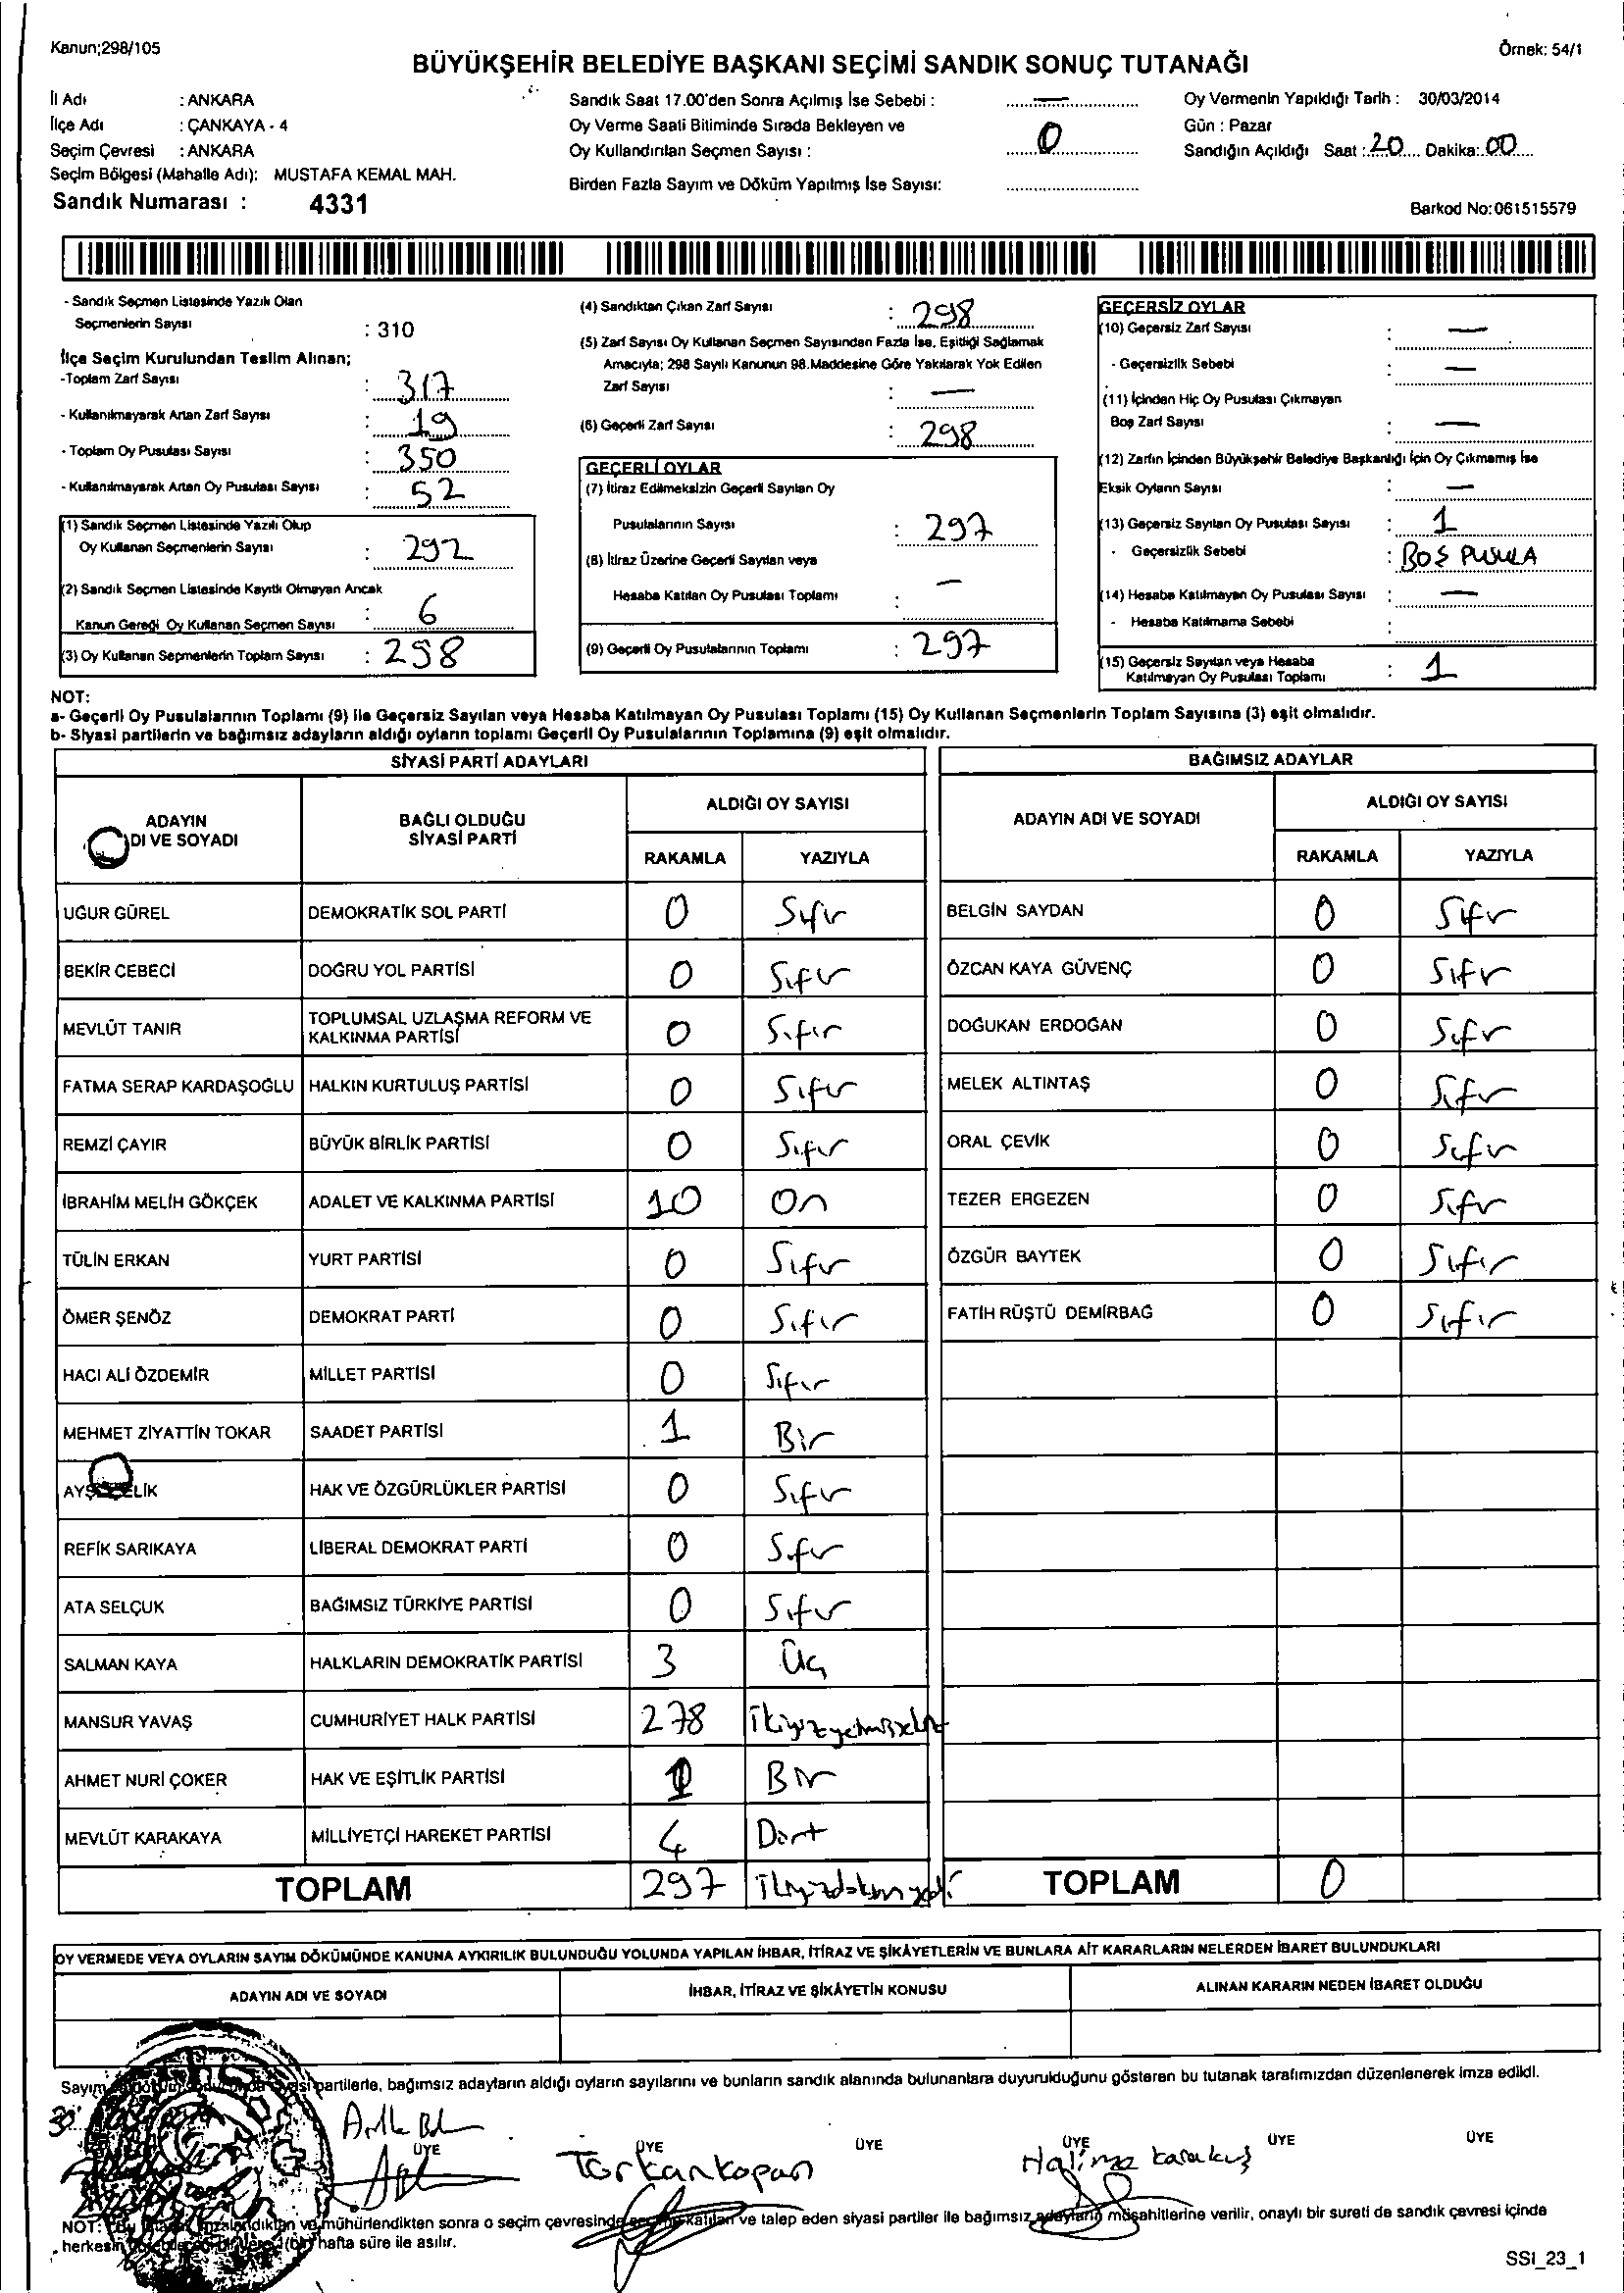 Kanun;298/105
Örnek: 54/1
BÜYÜKŞEHİR BELEDİYE BAŞKANI SEÇİMİ SANDIK SONUÇ TUTANAĞI
İl Adı : ANKARA
İlçe Adı : ÇANKAYA - 4
Seçim Çevresi : ANKARA
Seçim Bölgesi (Mahalle Adı): MUSTAFA KEMAL MAH.
Sandık Numarası : 4331
Sandık Saat 17.00'den Sonra Açılmış İse Sebebi : —
Oy Verme Saati Bitiminde Sırada Bekleyen ve
Oy Kullandırılan Seçmen Sayısı : 0
Birden Fazla Sayım ve Döküm Yapılmış İse Sayısı:
Oy Vermenin Yapıldığı Tarih : 30/03/2014
Gün : Pazar
Sandığın Açıldığı Saat : 20 Dakika: 00
Barkod No:061515579
- Sandık Seçmen Listesinde Yazılı Olan
Seçmenlerin Sayısı : 310
İlçe Seçim Kurulundan Teslim Alınan;
-Toplam Zarf Sayısı : 317
- Kullanılmayarak Artan Zarf Sayısı : 19
- Toplam Oy Pusulası Sayısı : 350
- Kullanılmayarak Artan Oy Pusulası Sayısı : 52
(1) Sandık Seçmen Listesinde Yazılı Olup
Oy Kullanan Seçmenlerin Sayısı : 292
(2) Sandık Seçmen Listesinde Kayıtlı Olmayan Ancak
Kanun Gereği Oy Kullanan Seçmen Sayısı : 6
(3) Oy Kullanan Seçmenlerin Toplam Sayısı : 298
(4) Sandıktan Çıkan Zarf Sayısı : 298
(5) Zarf Sayısı Oy Kullanan Seçmen Sayısından Fazla İse, Eşitliği Sağlamak
Amacıyla; 298 Sayılı Kanunun 98.Maddesine Göre Yakılarak Yok Edilen
Zarf Sayısı : —
(6) Geçerli Zarf Sayısı : 298
GEÇERLİ OYLAR
(7) İtiraz Edilmeksizin Geçerli Sayılan Oy
Pusulalarının Sayısı : 297
(8) İtiraz Üzerine Geçerli Sayılan veya
Hesaba Katılan Oy Pusulası Toplamı : —
(9) Geçerli Oy Pusulalarının Toplamı : 297
GEÇERSİZ OYLAR
(10) Geçersiz Zarf Sayısı : —
- Geçersizlik Sebebi : —
(11) İçinden Hiç Oy Pusulası Çıkmayan
Boş Zarf Sayısı : —
(12) Zarfın İçinden Büyükşehir Belediye Başkanlığı İçin Oy Çıkmamış İse
Eksik Oyların Sayısı : —
(13) Geçersiz Sayılan Oy Pusulası Sayısı : 1
- Geçersizlik Sebebi : BOŞ PUSULA
(14) Hesaba Katılmayan Oy Pusulası Sayısı : —
- Hesaba Katılmama Sebebi :
(15) Geçersiz Sayılan veya Hesaba
Katılmayan Oy Pusulası Toplamı : 1
NOT:
a- Geçerli Oy Pusulalarının Toplamı (9) ile Geçersiz Sayılan veya Hesaba Katılmayan Oy Pusulası Toplamı (15) Oy Kullanan Seçmenlerin Toplam Sayısına (3) eşit olmalıdır.
b- Siyasi partilerin ve bağımsız adayların aldığı oyların toplamı Geçerli Oy Pusulalarının Toplamına (9) eşit olmalıdır.
SİYASİ PARTİ ADAYLARI
ADAYIN
ADI VE SOYADI
BAĞLI OLDUĞU
SİYASİ PARTİ
ALDIĞI OY SAYISI
RAKAMLA YAZIYLA
UĞUR GÜREL DEMOKRATİK SOL PARTİ 0 Sıfır
BEKİR CEBECİ DOĞRU YOL PARTİSİ 0 Sıfır
MEVLÜT TANIR TOPLUMSAL UZLAŞMA REFORM VE
KALKINMA PARTİSİ 0 Sıfır
FATMA SERAP KARDAŞOĞLU HALKIN KURTULUŞ PARTİSİ 0 Sıfır
REMZİ ÇAYIR BÜYÜK BİRLİK PARTİSİ 0 Sıfır
İBRAHİM MELİH GÖKÇEK ADALET VE KALKINMA PARTİSİ 10 On
TÜLİN ERKAN YURT PARTİSİ 0 Sıfır
ÖMER ŞENÖZ DEMOKRAT PARTİ 0 Sıfır
HACI ALİ ÖZDEMİR MİLLET PARTİSİ 0 Sıfır
MEHMET ZİYATTİN TOKAR SAADET PARTİSİ 1 Bir
AYŞE ÇELİK HAK VE ÖZGÜRLÜKLER PARTİSİ 0 Sıfır
REFİK SARIKAYA LİBERAL DEMOKRAT PARTİ 0 Sıfır
ATA SELÇUK BAĞIMSIZ TÜRKİYE PARTİSİ 0 Sıfır
SALMAN KAYA HALKLARIN DEMOKRATİK PARTİSİ 3 Üç
MANSUR YAVAŞ CUMHURİYET HALK PARTİSİ 278 İkiyüzyetmişsekiz
AHMET NURİ ÇOKER HAK VE EŞİTLİK PARTİSİ 1 Bir
MEVLÜT KARAKAYA MİLLİYETÇİ HAREKET PARTİSİ 4 Dört
TOPLAM 297 İkiyüzdoksanyedi
BAĞIMSIZ ADAYLAR
ADAYIN ADI VE SOYADI
ALDIĞI OY SAYISI
RAKAMLA YAZIYLA
BELGİN SAYDAN 0 Sıfır
ÖZCAN KAYA GÜVENÇ 0 Sıfır
DOĞUKAN ERDOĞAN 0 Sıfır
MELEK ALTINTAŞ 0 Sıfır
ORAL ÇEVİK 0 Sıfır
TEZER ERGEZEN 0 Sıfır
ÖZGÜR BAYTEK 0 Sıfır
FATİH RÜŞTÜ DEMİRBAĞ 0 Sıfır
TOPLAM 0
OY VERMEDE VEYA OYLARIN SAYIM DÖKÜMÜNDE KANUNA AYKIRILIK BULUNDUĞU YOLUNDA YAPILAN İHBAR, İTİRAZ VE ŞİKÂYETLERİN VE BUNLARA AİT KARARLARIN NELERDEN İBARET BULUNDUKLARI
ADAYIN ADI VE SOYADI
İHBAR, İTİRAZ VE ŞİKÂYETİN KONUSU
ALINAN KARARIN NEDEN İBARET OLDUĞU
Sayım siyasi partilerle, bağımsız adayların aldığı oyların sayılarını ve bunların sandık alanında bulunanlara duyurulduğunu gösteren bu tutanak tarafımızdan düzenlenerek imza edildi.
ÜYE ÜYE ÜYE ÜYE ÜYE ÜYE
Halime Karakuş
NOT: Bu imzalandıktan ve mühürlendikten sonra o seçim çevresinde katılan ve talep eden siyasi partiler ile bağımsız adayların müşahitlerine verilir, onaylı bir sureti de sandık çevresi içinde
herkesin hafta süre ile asılır.
SSI_23_1